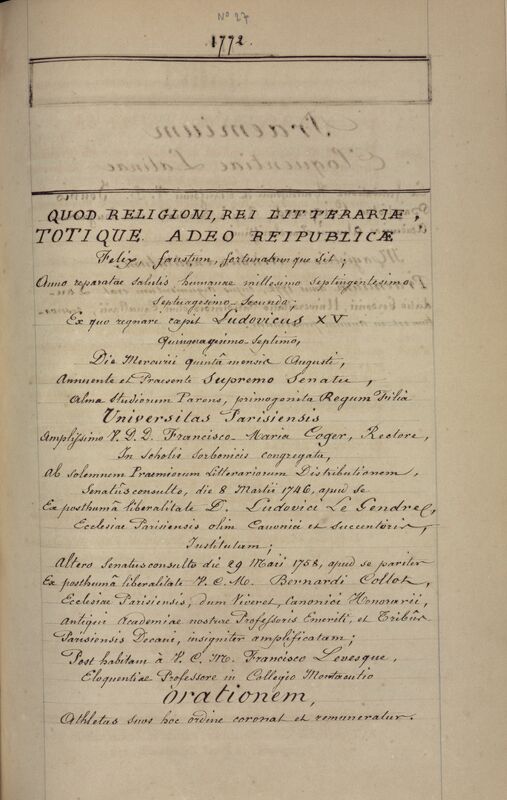 No 27
1772.
QUOD RELIGIONI, REI LITTERARIÆ,
TOTIQUE ADEO REIPUBLICÆ
Felix, faustum, fortunatumque sit;
Anno reparatae salutis humanae millesimo septingentesimo
Septuagesimo-Secundo;
Ex quo regnare cæpit Ludovicus XV
Quinquagesimo-Septimo,
Die Mercurii quintâ mensis Augusti,
Annuente et Praesente Supremo Senatu,
Alma Studiorum Parens, primogenita Regum Filia
Universitas Parisiensis
Amplissimo V. D. D. Francisco-Maria Coger, Rectore,
In Scholis Sorbonicis congregata,
Ab solemnem Praemiorum Litterariorum Distributionem,
Senatûsconsulto, die 8 Martii 1746, apud se
Ex posthumâ liberalitate D. Ludovici Le Gendre,
Ecclesiae Parisiensis olim Canonici et Succentoris,
Institutam;
Altero Senatusconsulto die 29 Maii 1758, apud se pariter
Ex posthumâ liberalitate V. C. M. Bernardi Collot,
Ecclesiae Parisiensis, dum Viveret, Canonici Honorarii,
Antiqui Academiae nostrae Professoris Emeriti, et Tribûs
Parisiensis Decani, insigniter amplificatam;
Post habitam à V. C. M. Francisco Levesque,
Eloquentiae Professore in Collegio Montacutio
Orationem,
Athletas suos hoc ordine coronat et remuneratur.